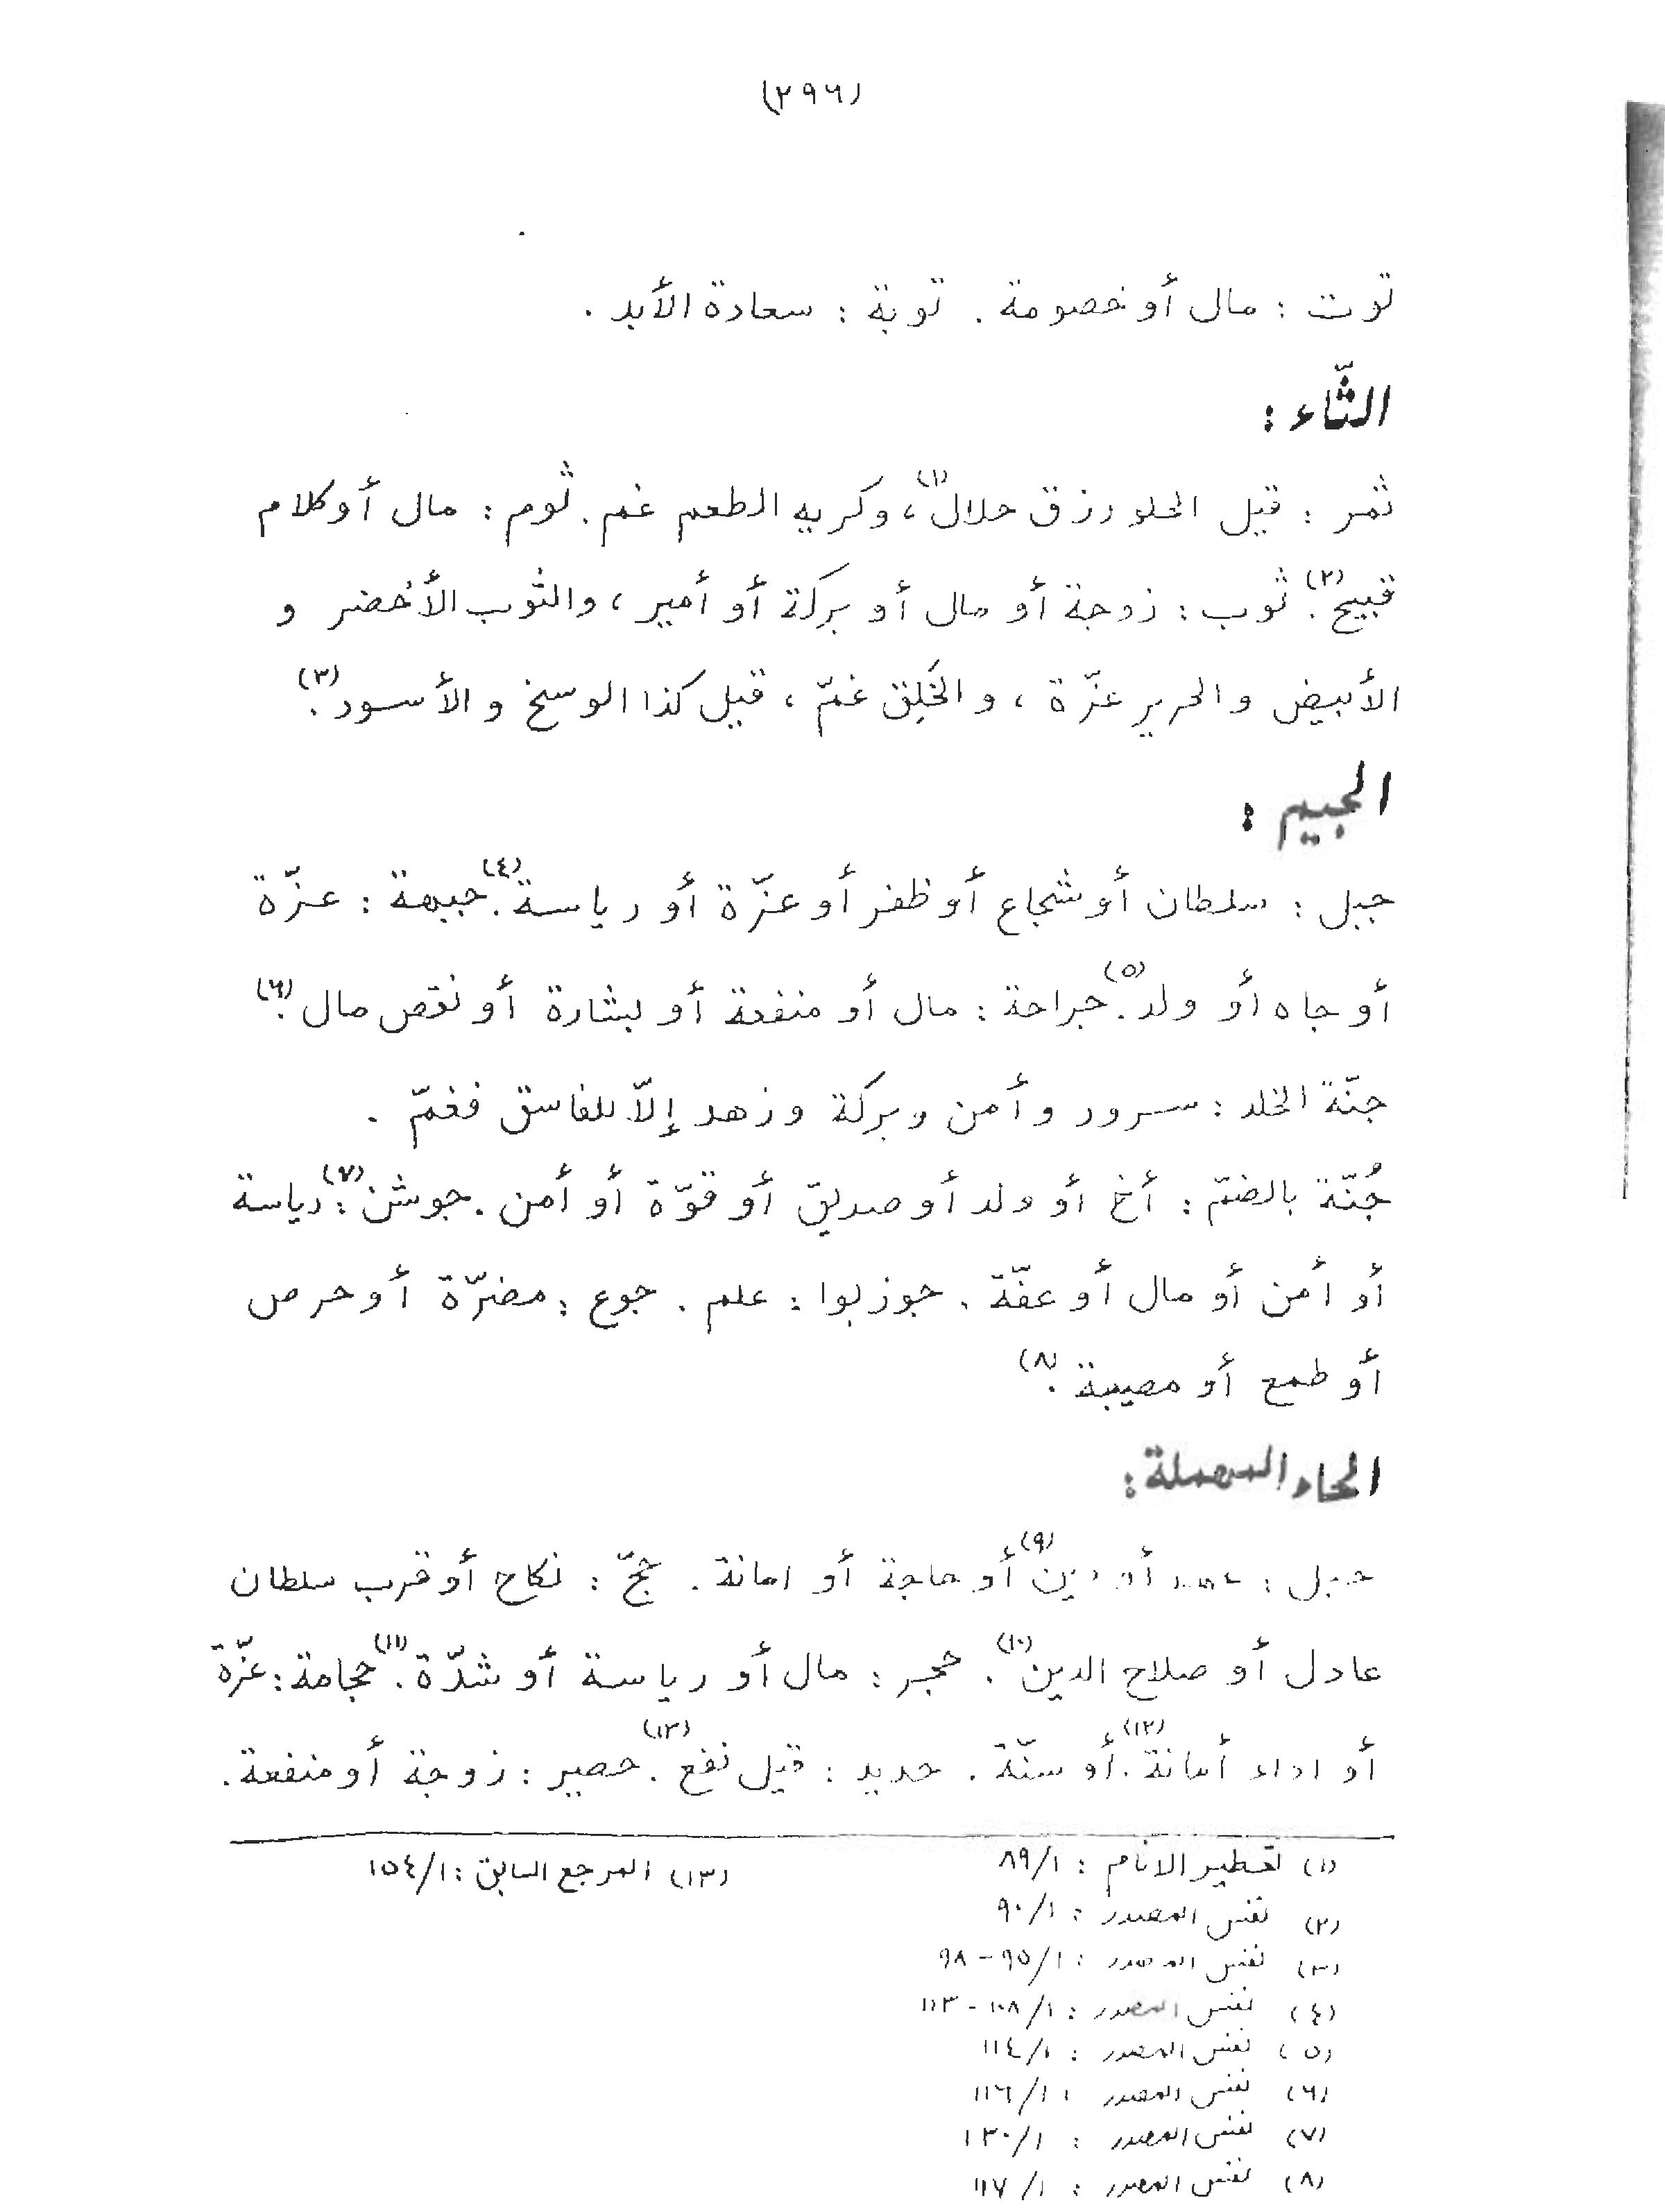 (٢٩٦)
توت : مال أو خصومة . توبة : سعادة الأبد .
الثّاء :
ثمر : قيل الحلو رزق حلال(١)، وكريه الطعم غم . ثوم : مال أو كلام
قبيح(٢). ثوب : زوجة أو مال أو بركة أو أمير ، والثوب الأخضر و
الأبيض والحرير عزّة ، والخَلِق غمّ ، قيل كذا الوسخ والأسود(٣).
الجيم :
جبل : سلطان أو شجاع أو ظفر أو عزّة أو رياسة(٤). جبهة : عزّة
أو جاه أو ولد(٥). جراحة : مال أو منفعة أو بشارة أو نقص مال(٦).
جنّة الخلد : سرور وأمن وبركة وزهد إلاّ للفاسق فغمّ .
جُنّة بالضمّ : أخ أو ولد أو صديق أو قوّة أو أمن . جوشن(٧): رياسة
أو أمن أو مال أو عفّة . جوز بوا : علم . جوع : مضرّة أو حرص
أو طمع أو مصيبة(٨).
الحاء المهملة :
حبل : عهد أو دين(٩) أو حاجة أو امانة . حجّ : نكاح أو قرب سلطان
عادل أو صلاح الدين(١٠). حجر : مال أو رياسة أو شدّة(١١). حجامة : عزّة
أو اداء أمانة(١٢). أو سنّة . حديد : قيل نفع(١٣). حصير : زوجة أو منفعة .
(١) تعطير الانام : ٨٩/١
(٢) نفس المصدر : ٩٠/١
(٣) نفس المصدر : ٩٥/١ - ٩٨
(٤) نفس المصدر : ١٠٨/١ - ١١٣
(٥) نفس المصدر : ١١٤/١
(٦) نفس المصدر : ١١٦/١
(٧) نفس المصدر : ١٣٠/١
(٨) نفس المصدر : ١١٧/١
(١٣) المرجع السابق : ١٥٤/١